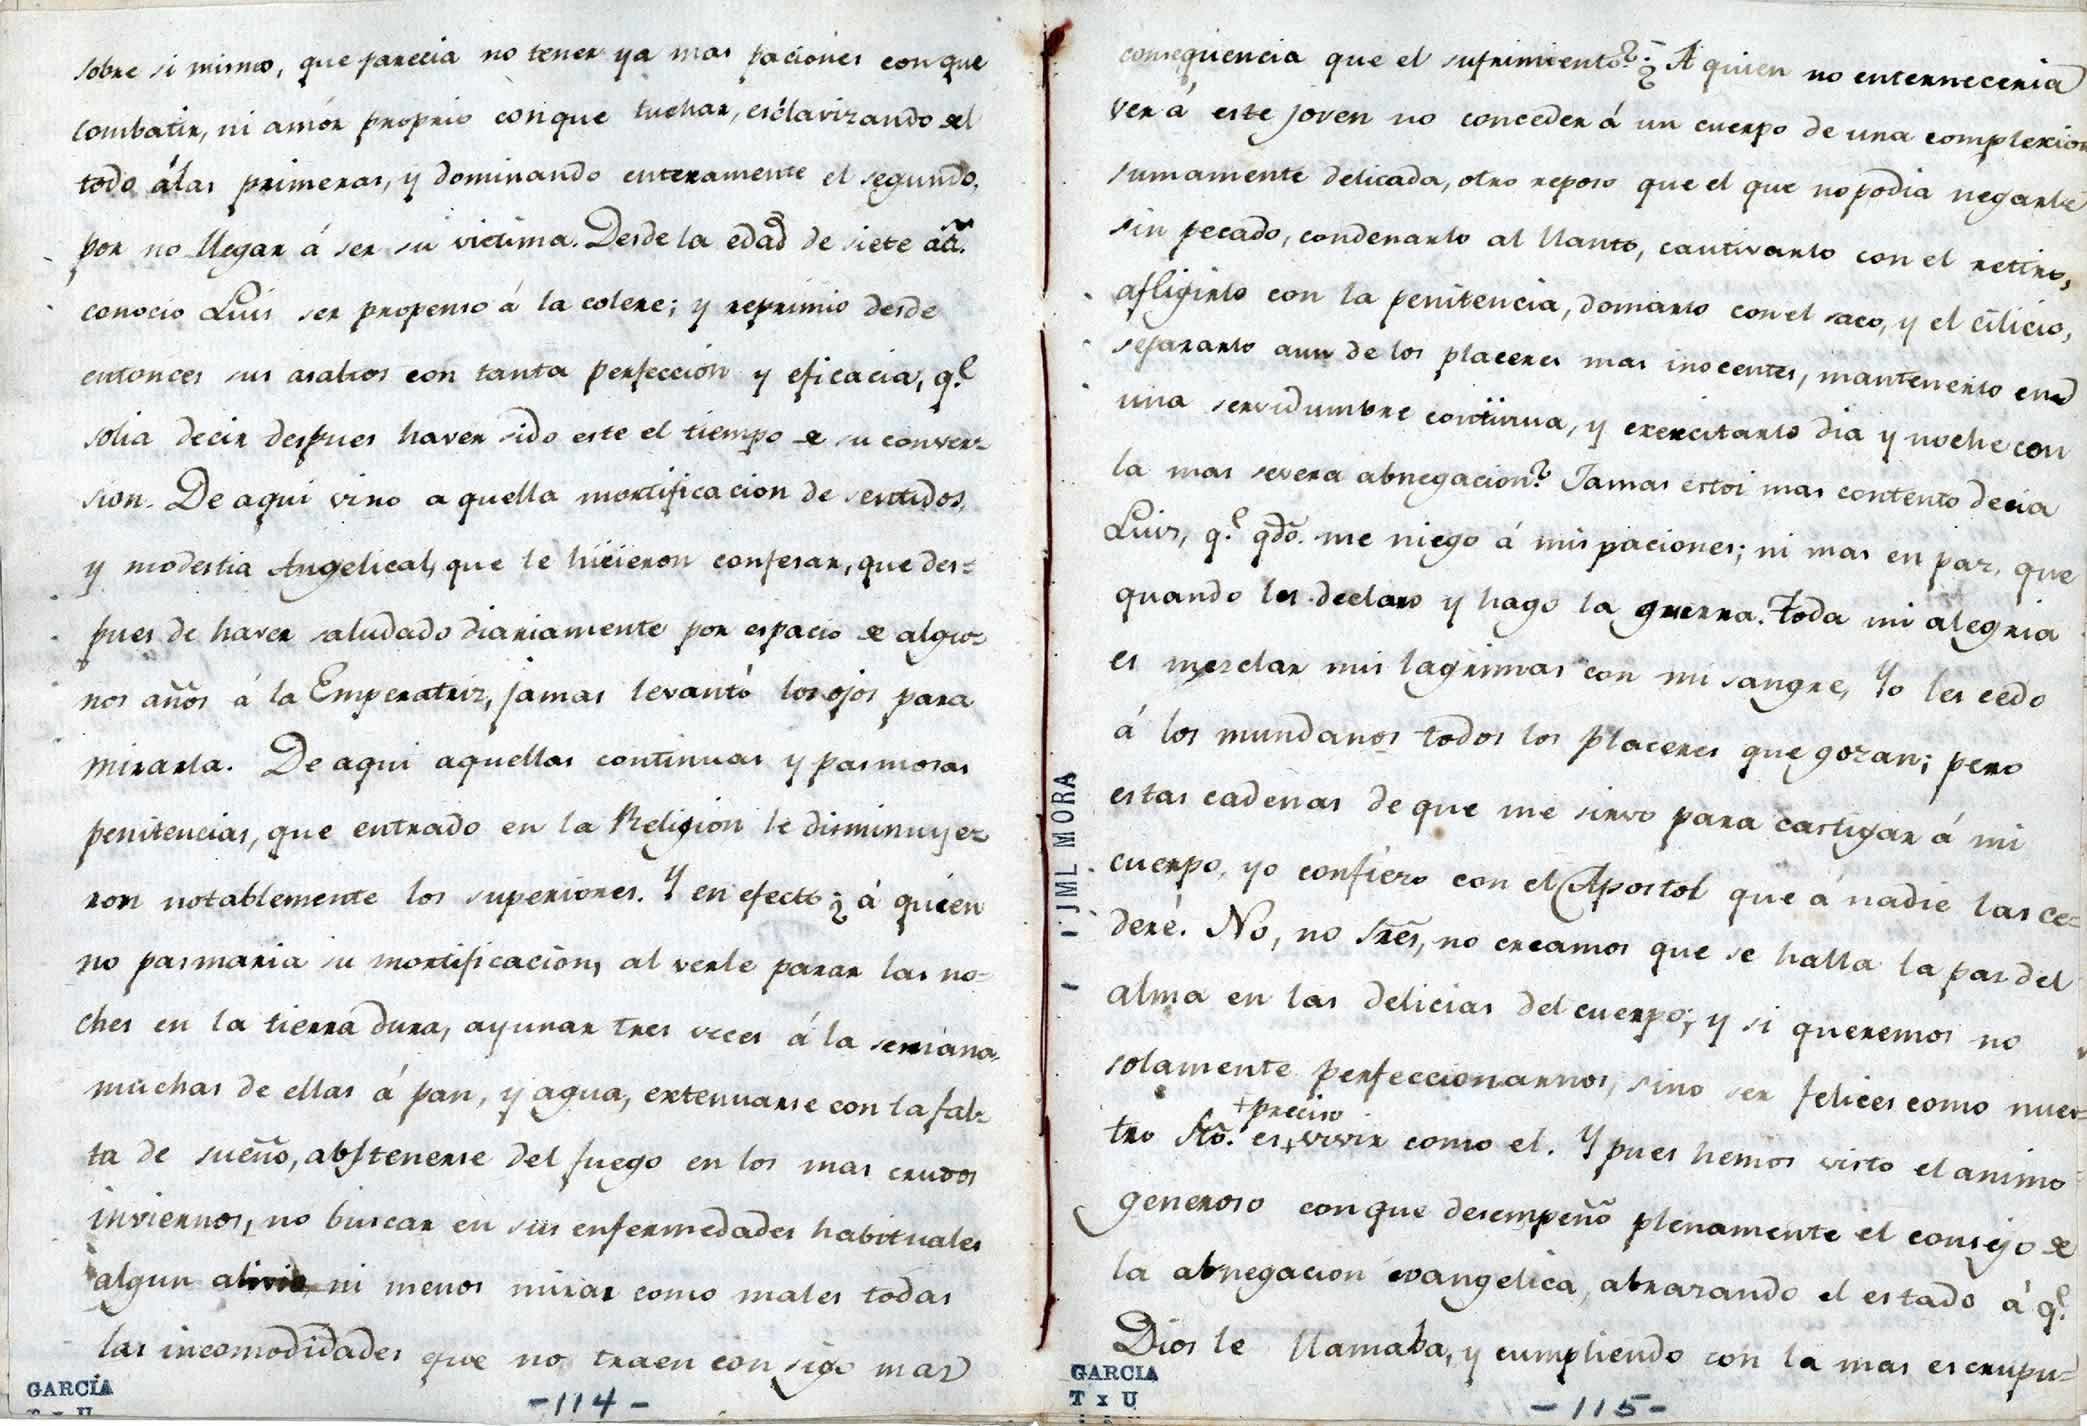 sobre si mismo, que parecia no tener ya mas paciones con que
combatir, ni amór proprio conque luchar, esclavizando del
todo á las primeras, y dominando enteramente el segundo,
por no llegar á ser su victima. Desde la edad de siete añ.
conocio Luis ser propenso á la colere; y reprimio desde
entonces sus asaltos con tanta perfeccion y eficacia, q.e
solia decir despues haver sido este el tiempo de su conver-
sion. De aqui vino aquella mortificacion de sentidos,
y modestia Angelical, que le hicieron confesar, que des=
pues de haver saludado diariamente por espacio de algu-
nos años á la Emperatriz, jamas levantó los ojos para
mirarla. De aqui aquellas continuas y pasmosas
penitencias, que entrado en la Religion le disminuye-
ron notablemente los superiores. Y en efecto ¿á quien
no pasmaria su mortificacion, al verle pasar las no-
ches en la tierra dura, ayunar tres veces á la semana,
muchas de ellas á pan, y agua, extenuarse con la fal-
ta de sueño, abstenerse del fuego en los mas crudos
inviernos, no buscar en sus enfermedades habituales
algun alivio, ni menos mirar como males todas
las incomodidades que no traen consigo mas
GARCÍA
-114-
consequencia que el sufrimiento? ¿A quien no enterneceria
ver á este joven no conceder á un cuerpo de una complexion
sumamente delicada, otro reposo que el que no podia negarle
sin pecado, condenarlo al llanto, cautivarlo con el retiro,
afligirlo con la penitencia, domarlo con el saco, y el cilicio,
separarlo aun de los placeres mas inocentes, mantenerlo en
una servidumbre continua, y exercitarlo dia y noche con
la mas severa abnegacion? Jamas estoi mas contento decia
Luis, q.e qdo. me niego á mis paciones; ni mas en paz, que
quando les declaro y hago la guerra. Toda mi alegria
es mezclar mis lagrimas con mi sangre, Yo les cedo
á los mundanos todos los placeres que gozan; pero
estas cadenas de que me sirvo para castigar á mi
cuerpo, yo confiero con el Apostol que á nadie las ce=
deré. No, no Sres, no creamos que se halla la paz del
alma en las delicias del cuerpo; y si queremos no
solamente perfeccionarnos, sino ser felices como nues=
+preciso
tro Sto. es+vivir como el. Y pues hemos visto el animo
generoso conque desempeño plenamente el consejo de
la abnegacion evangelica, abrazando el estado á q.e
Dios le llamaba, y cumpliendo con la mas escrupu=
GARCIA
T x U
-115-
JML MORA